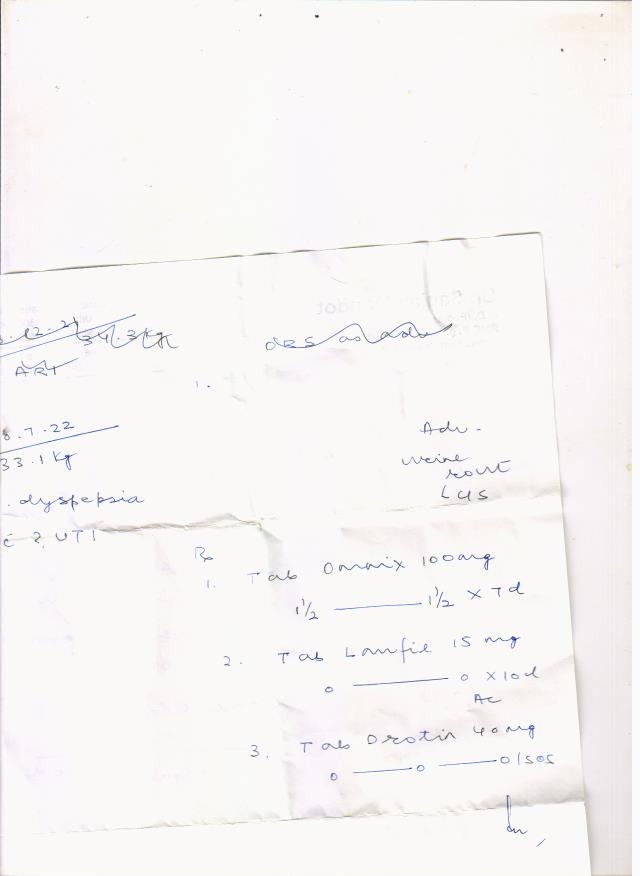 34.3 kg
ORS
ART
1.
8.7.22
33.1 kg
Adv -
Urine
rout
. dyspepsia
c̄ ? UTI
Rx
1. Tab Omnix 100mg
1 1/2 ——— 1 1/2 x 7d
2. Tab Lanfil 15 mg
0 ——— 0 x 10d
AC
3. Tab Drotin 40mg
0 ——— 0 ——— 0/SOS